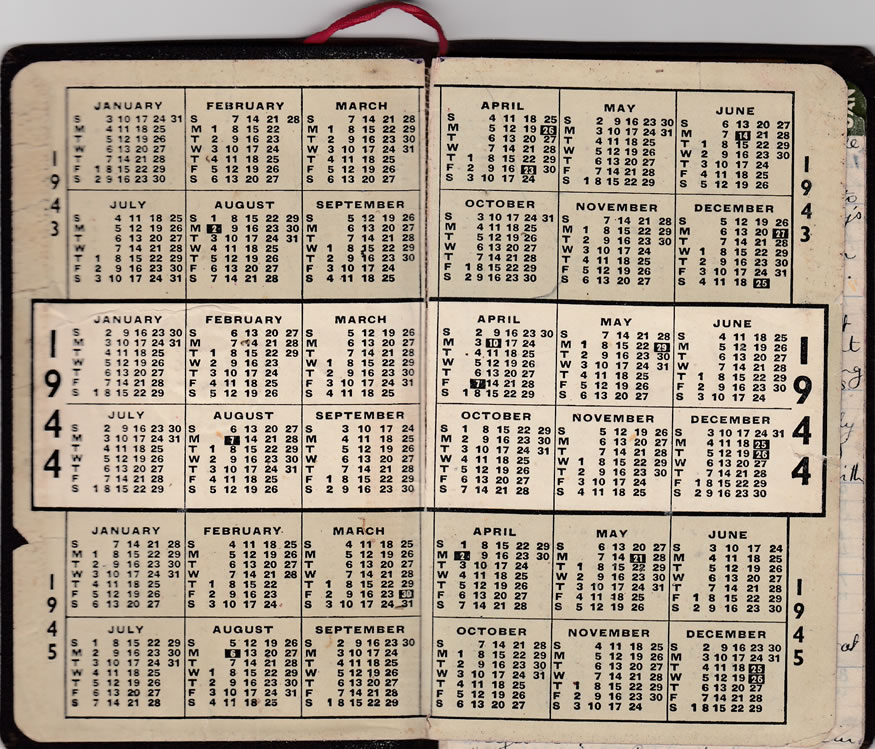 1943
JANUARY
S 3 10 17 24 31
M 4 11 18 25
T 5 12 19 26
W 6 13 20 27
T 7 14 21 28
F 1 8 15 22 29
S 2 9 16 23 30
FEBRUARY
S 7 14 21 28
M 1 8 15 22
T 2 9 16 23
W 3 10 17 24
T 4 11 18 25
F 5 12 19 26
S 6 13 20 27
MARCH
S 7 14 21 28
M 1 8 15 22 29
T 2 9 16 23 30
W 3 10 17 24 31
T 4 11 18 25
F 5 12 19 26
S 6 13 20 27
APRIL
S 4 11 18 25
M 5 12 19 26
T 6 13 20 27
W 7 14 21 28
T 1 8 15 22 29
F 2 9 16 23 30
S 3 10 17 24
MAY
S 2 9 16 23 30
M 3 10 17 24 31
T 4 11 18 25
W 5 12 19 26
T 6 13 20 27
F 7 14 21 28
S 1 8 15 22 29
JUNE
S 6 13 20 27
M 7 14 21 28
T 1 8 15 22 29
W 2 9 16 23 30
T 3 10 17 24
F 4 11 18 25
S 5 12 19 26
1943
JULY
S 4 11 18 25
M 5 12 19 26
T 6 13 20 27
W 7 14 21 28
T 1 8 15 22 29
F 2 9 16 23 30
S 3 10 17 24 31
AUGUST
S 1 8 15 22 29
M 2 9 16 23 30
T 3 10 17 24 31
W 4 11 18 25
T 5 12 19 26
F 6 13 20 27
S 7 14 21 28
SEPTEMBER
S 5 12 19 26
M 6 13 20 27
T 7 14 21 28
W 1 8 15 22 29
T 2 9 16 23 30
F 3 10 17 24
S 4 11 18 25
OCTOBER
S 3 10 17 24 31
M 4 11 18 25
T 5 12 19 26
W 6 13 20 27
T 7 14 21 28
F 1 8 15 22 29
S 2 9 16 23 30
NOVEMBER
S 7 14 21 28
M 1 8 15 22 29
T 2 9 16 23 30
W 3 10 17 24
T 4 11 18 25
F 5 12 19 26
S 6 13 20 27
DECEMBER
S 5 12 19 26
M 6 13 20 27
T 7 14 21 28
W 1 8 15 22 29
T 2 9 16 23 30
F 3 10 17 24 31
S 4 11 18 25
1944
JANUARY
S 2 9 16 23 30
M 3 10 17 24 31
T 4 11 18 25
W 5 12 19 26
T 6 13 20 27
F 7 14 21 28
S 1 8 15 22 29
FEBRUARY
S 6 13 20 27
M 7 14 21 28
T 1 8 15 22 29
W 2 9 16 23
T 3 10 17 24
F 4 11 18 25
S 5 12 19 26
MARCH
S 5 12 19 26
M 6 13 20 27
T 7 14 21 28
W 1 8 15 22 29
T 2 9 16 23 30
F 3 10 17 24 31
S 4 11 18 25
APRIL
S 2 9 16 23 30
M 3 10 17 24
T 4 11 18 25
W 5 12 19 26
T 6 13 20 27
F 7 14 21 28
S 1 8 15 22 29
MAY
S 7 14 21 28
M 1 8 15 22 29
T 2 9 16 23 30
W 3 10 17 24 31
T 4 11 18 25
F 5 12 19 26
S 6 13 20 27
JUNE
S 4 11 18 25
M 5 12 19 26
T 6 13 20 27
W 7 14 21 28
T 1 8 15 22 29
F 2 9 16 23 30
S 3 10 17 24
1944
JULY
S 2 9 16 23 30
M 3 10 17 24 31
T 4 11 18 25
W 5 12 19 26
T 6 13 20 27
F 7 14 21 28
S 1 8 15 22 29
AUGUST
S 6 13 20 27
M 7 14 21 28
T 1 8 15 22 29
W 2 9 16 23 30
T 3 10 17 24 31
F 4 11 18 25
S 5 12 19 26
SEPTEMBER
S 3 10 17 24
M 4 11 18 25
T 5 12 19 26
W 6 13 20 27
T 7 14 21 28
F 1 8 15 22 29
S 2 9 16 23 30
OCTOBER
S 1 8 15 22 29
M 2 9 16 23 30
T 3 10 17 24 31
W 4 11 18 25
T 5 12 19 26
F 6 13 20 27
S 7 14 21 28
NOVEMBER
S 5 12 19 26
M 6 13 20 27
T 7 14 21 28
W 1 8 15 22 29
T 2 9 16 23 30
F 3 10 17 24
S 4 11 18 25
DECEMBER
S 3 10 17 24 31
M 4 11 18 25
T 5 12 19 26
W 6 13 20 27
T 7 14 21 28
F 1 8 15 22 29
S 2 9 16 23 30
1945
JANUARY
S 7 14 21 28
M 1 8 15 22 29
T 2 9 16 23 30
W 3 10 17 24 31
T 4 11 18 25
F 5 12 19 26
S 6 13 20 27
FEBRUARY
S 4 11 18 25
M 5 12 19 26
T 6 13 20 27
W 7 14 21 28
T 1 8 15 22
F 2 9 16 23
S 3 10 17 24
MARCH
S 4 11 18 25
M 5 12 19 26
T 6 13 20 27
W 7 14 21 28
T 1 8 15 22 29
F 2 9 16 23 30
S 3 10 17 24 31
APRIL
S 1 8 15 22 29
M 2 9 16 23 30
T 3 10 17 24
W 4 11 18 25
T 5 12 19 26
F 6 13 20 27
S 7 14 21 28
MAY
S 6 13 20 27
M 7 14 21 28
T 1 8 15 22 29
W 2 9 16 23 30
T 3 10 17 24 31
F 4 11 18 25
S 5 12 19 26
JUNE
S 3 10 17 24
M 4 11 18 25
T 5 12 19 26
W 6 13 20 27
T 7 14 21 28
F 1 8 15 22 29
S 2 9 16 23 30
1945
JULY
S 1 8 15 22 29
M 2 9 16 23 30
T 3 10 17 24 31
W 4 11 18 25
T 5 12 19 26
F 6 13 20 27
S 7 14 21 28
AUGUST
S 5 12 19 26
M 6 13 20 27
T 7 14 21 28
W 1 8 15 22 29
T 2 9 16 23 30
F 3 10 17 24 31
S 4 11 18 25
SEPTEMBER
S 2 9 16 23 30
M 3 10 17 24
T 4 11 18 25
W 5 12 19 26
T 6 13 20 27
F 7 14 21 28
S 1 8 15 22 29
OCTOBER
S 7 14 21 28
M 1 8 15 22 29
T 2 9 16 23 30
W 3 10 17 24 31
T 4 11 18 25
F 5 12 19 26
S 6 13 20 27
NOVEMBER
S 4 11 18 25
M 5 12 19 26
T 6 13 20 27
W 7 14 21 28
T 1 8 15 22 29
F 2 9 16 23 30
S 3 10 17 24
DECEMBER
S 2 9 16 23 30
M 3 10 17 24 31
T 4 11 18 25
W 5 12 19 26
T 6 13 20 27
F 7 14 21 28
S 1 8 15 22 29